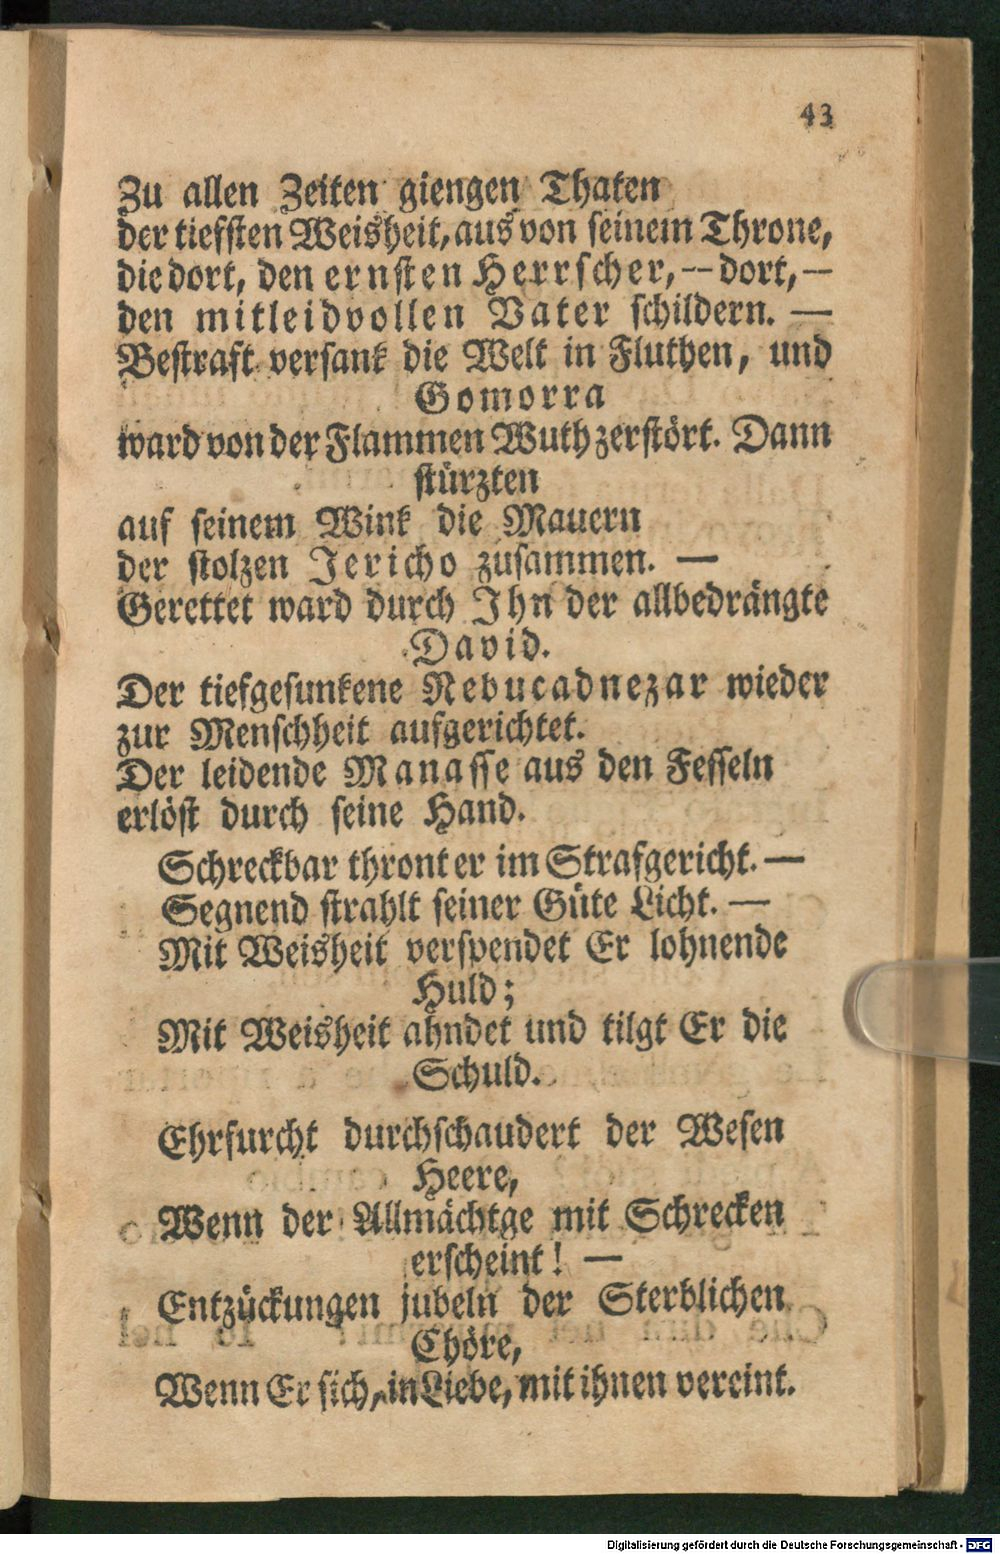 43
Zu allen Zeiten giengen Thaten
der tiefsten Weisheit, aus von seinem Throne,
die dort, den ernsten Herrscher, -- dort, —
den mitleidvollen Vater schildern. —
Bestraft versank die Welt in Fluthen, und
Gomorra
ward von der Flammen Wuth zerstört. Dann
stürzten
auf seinem Wink die Mauern
der stolzen Jericho zusammen. —
Gerettet ward durch Ihn der allbedrängte
David.
Der tiefgesunkene Nebucadnezar wieder
zur Menschheit aufgerichtet.
Der leidende Manasse aus den Fesseln
erlöst durch seine Hand.
Schreckbar thront er im Strafgericht. —
Segnend strahlt seiner Güte Licht. —
Mit Weisheit verspendet Er lohnende
Huld;
Mit Weisheit ahndet und tilgt Er die
Schuld.
Ehrfurcht durchschaudert der Wesen
Heere,
Wenn der Allmächtge mit Schrecken
erscheint! —
Entzückungen jubeln der Sterblichen
Chöre,
Wenn Er sich, in Liebe, mit ihnen vereint.
Digitalisierung gefördert durch die Deutsche Forschungsgemeinschaft - DFG